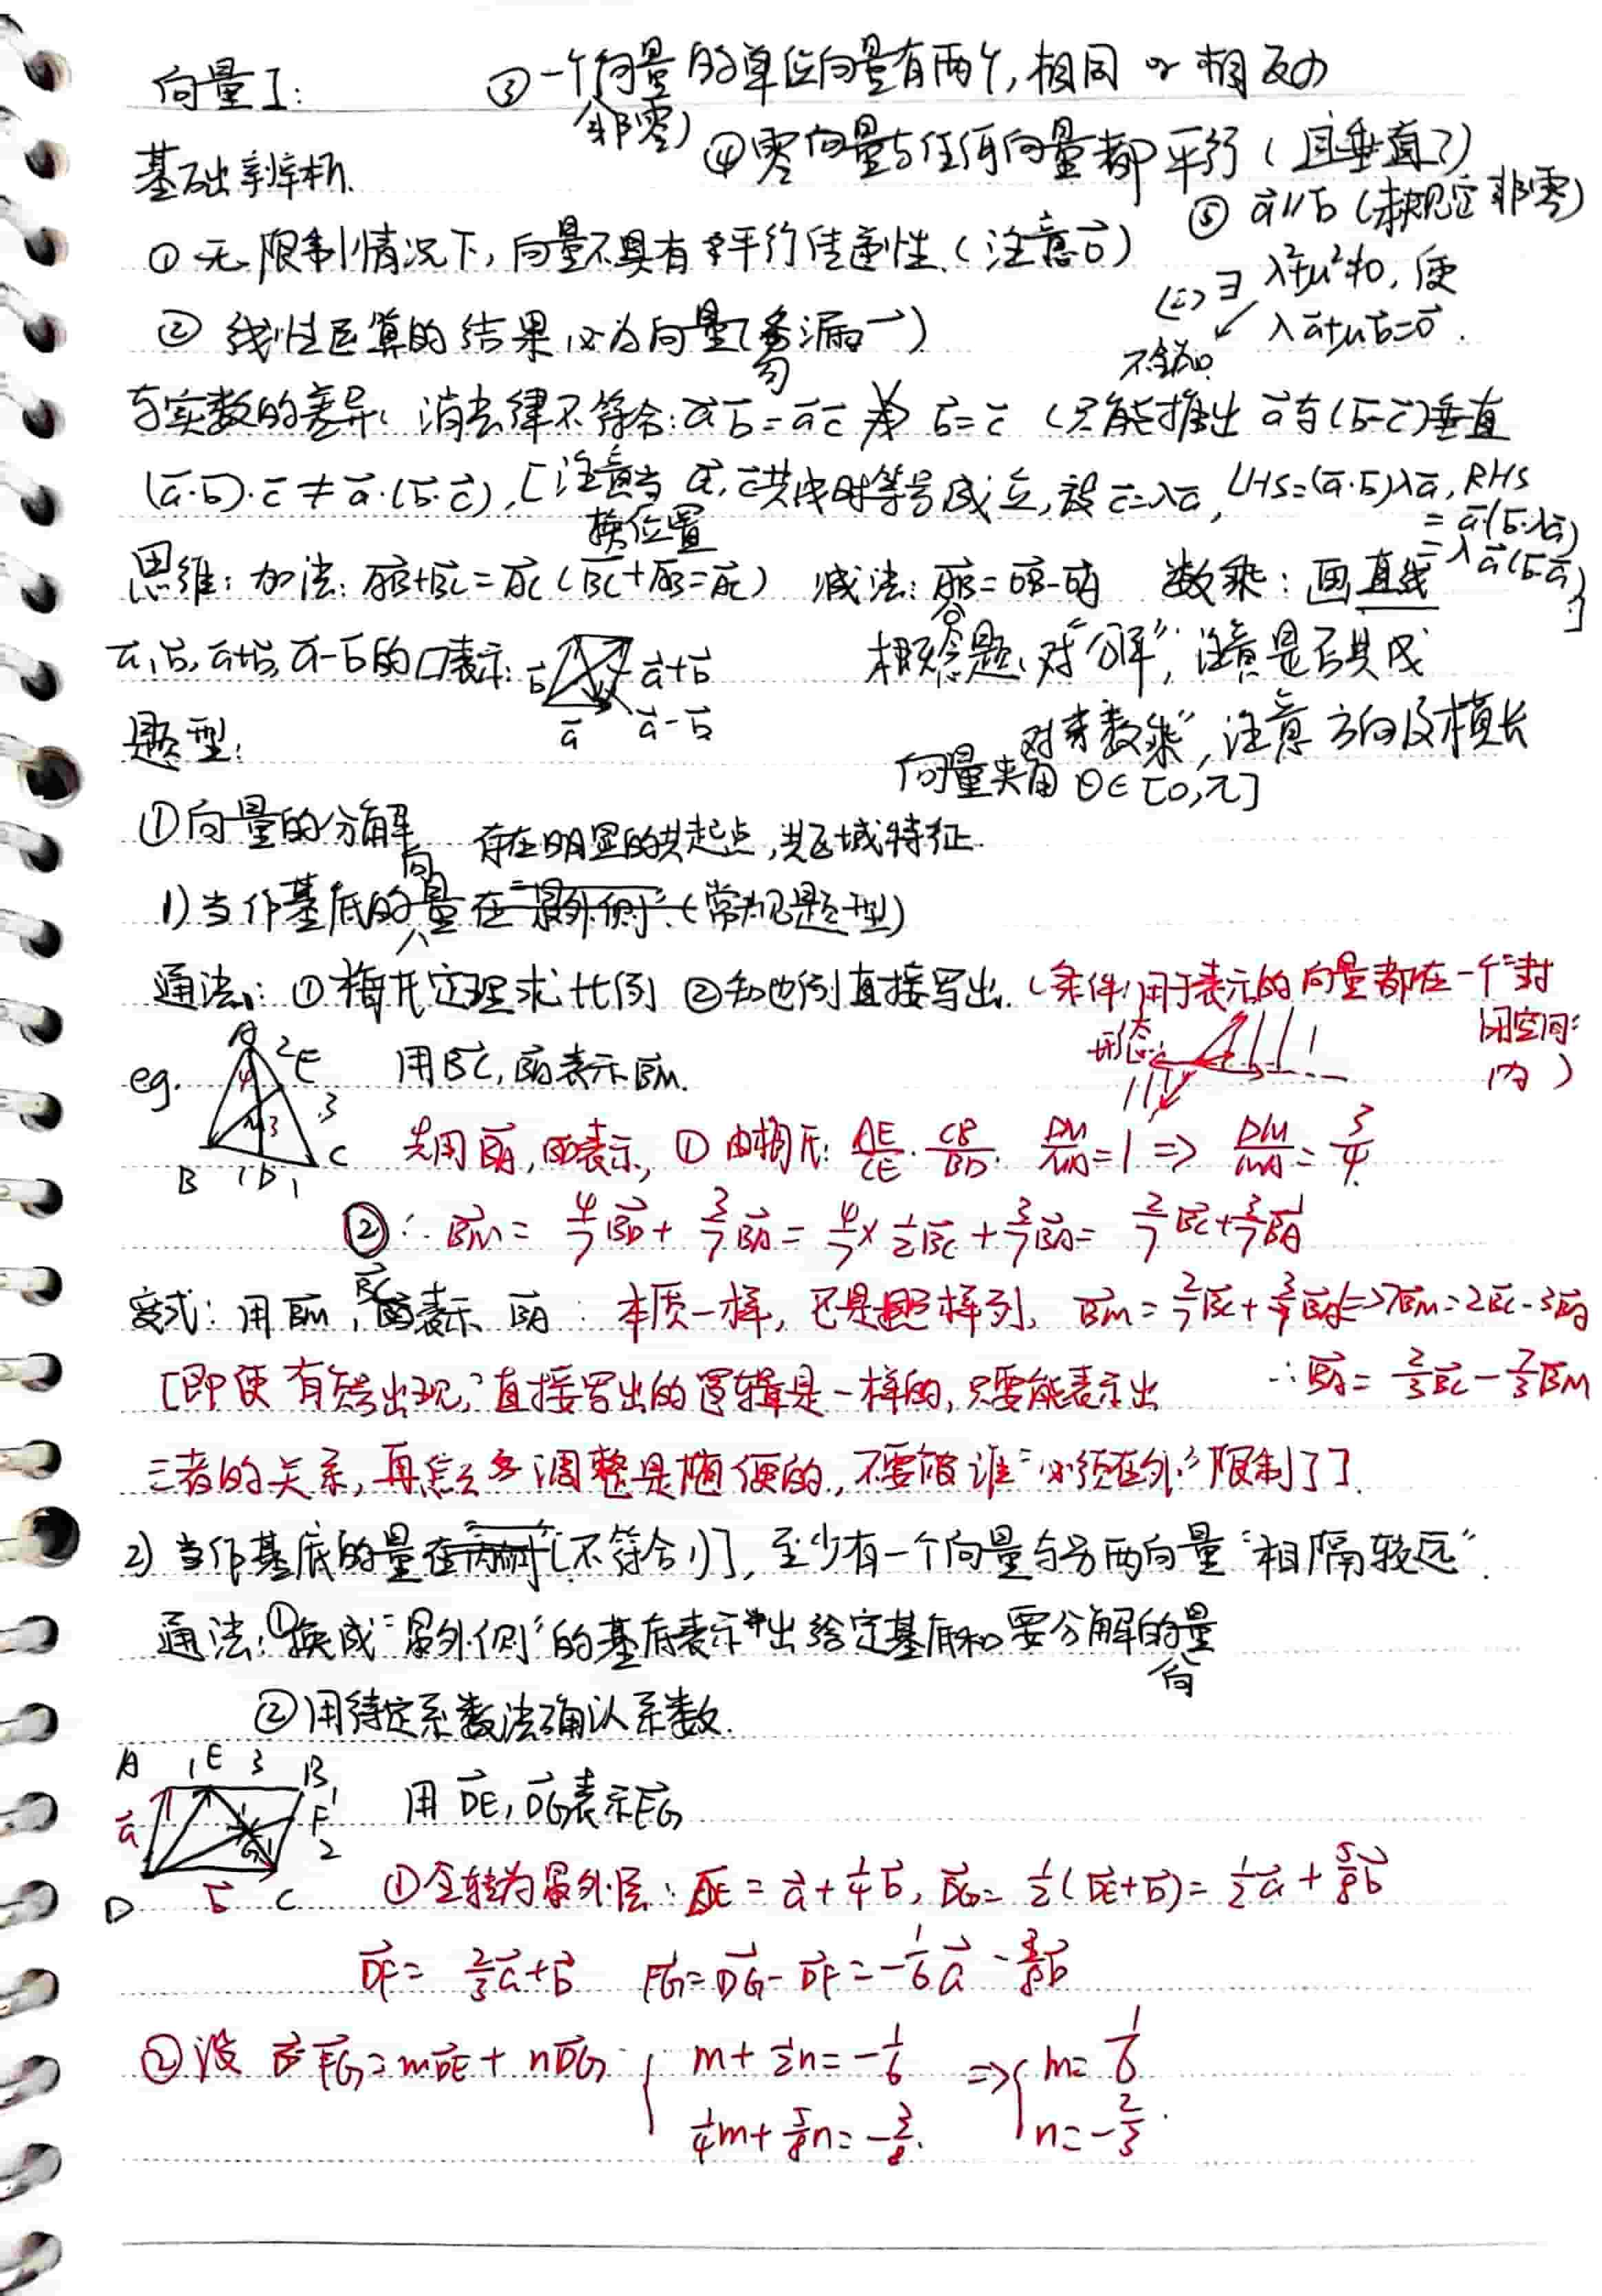 向量I:
③一个向量的单位向量有两个,相同 or 相反
(非零)
④零向量与任何向量都平行(且垂直?)
基础辨析.
⑤ a⃗//b⃗ (未规定非零)
<=> ∃ λ²+μ²≠0, 使
λa⃗+μb⃗=0⃗.
不全为0.
①无限制情况下,向量不具有平行传递性.(注意0⃗)
②线性运算的结果必为向量(勿漏→)
与实数的差异: 消去律不符合: a⃗b⃗=a⃗c⃗ ⇏ b⃗=c⃗ (只能推出 a⃗与(b⃗-c⃗)垂直
(a⃗·b⃗)·c⃗ ≠ a⃗·(b⃗·c⃗), [注意当 a⃗,c⃗共线时等号成立,设 c⃗=λa⃗, LHS=(a⃗·b⃗)λa⃗, RHS
= a⃗·(b⃗·λa⃗)
= λa⃗(b⃗·a⃗)]
换位置
思维: 加法: AB⃗+BC⃗=AC⃗ (BC⃗+AB⃗=AC⃗) 减法: AB⃗=OB⃗-OA⃗ 数乘: 画直线
a⃗,b⃗,a⃗+b⃗,a⃗-b⃗的▱表示: b⃗ a⃗+b⃗
a⃗ a⃗-b⃗
概念题: 对“分解”, 注意是否共线
对“数乘”, 注意方向及模长
向量夹角 θ∈[0,π]
题型:
①向量的分解
存在明显的共起点,共区域特征.
1)当作基底的向量在“最外侧”(常见题型)
通法: ①梅氏定理求比例 ②知比例直接写出.(条件:用于表示的向量都在一个“封
闭空间”
内)
形态:
eg. A 2 E 4 3 M 3 B 1 D 1 C
用BC⃗,BA⃗表示BM⃗.
先用BA⃗,BD⃗表示, ①由梅氏: AE/CE · CB/BD · DM/MA=1 => DM/MA=3/4.
②∴ BM⃗ = 4/7BD⃗ + 3/7BA⃗ = 4/7×1/2BC⃗ + 3/7BA⃗ = 2/7BC⃗+3/7BA⃗
变式: 用 BM⃗, BC⃗表示 BA⃗: 本质一样, 已是样列, BM⃗=2/7BC⃗+3/7BA⃗<=>7BM⃗=2BC⃗-3BA⃗
∴BA⃗ = 2/3BC⃗-7/3BM⃗
[即便“有负号出现”直接写出的逻辑是一样的,只要能表示出
三者的关系,再怎么调整是随便的,不要被谁“必须在外”限制了]
2)当作基底的量在两侧[不符合1)], 至少有一个向量与另两向量“相隔较远”.
通法:①换成“最外侧”的基底表示出给定基底和要分解的向量
②用待定系数法确认系数.
A 1 E 3 B
1 F 2
a⃗ G
D b⃗ C
用 DE⃗, DG⃗表示FG⃗
①全转为最外层: DE⃗ = a⃗+1/4b⃗, DG⃗= 1/2(DE⃗+b⃗)= 1/2a⃗ + 5/8b⃗
DF⃗= 2/3a⃗+b⃗ FG⃗=DG⃗-DF⃗=-1/6a⃗-3/8b⃗
②设 FG⃗=mDE⃗+nDG⃗ { m+1/2n=-1/6 => { m=1/6
1/4m+5/8n=-3/8. n=-2/3.